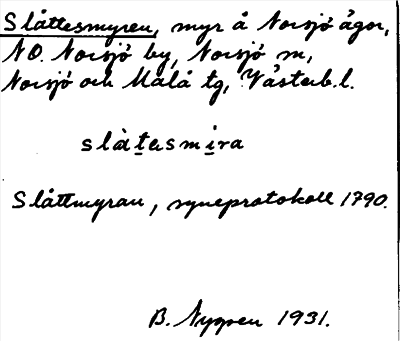 Slåttesmyren, myr å Norsjö ägor,
NO. Norsjö by, Norsjö sn,
Norsjö och Malå tg, Västerb.l.
slàtesmira
Slåttmyran, syneprotokoll 1790.
B. Nygren 1931.